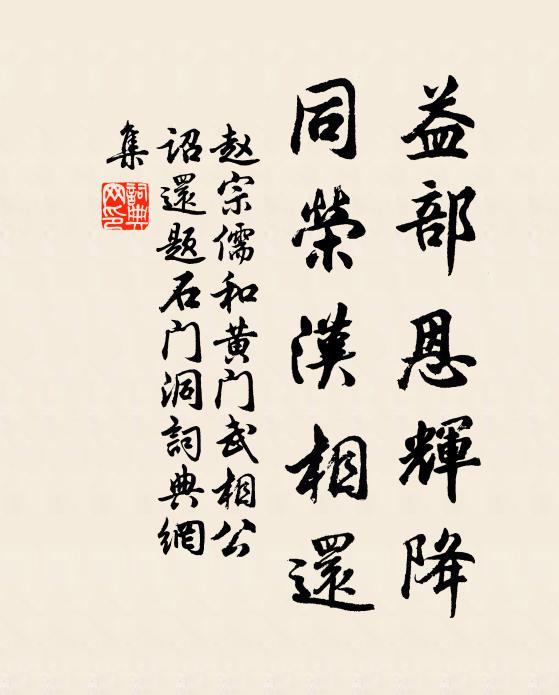 益部恩輝降
同榮漢相還
赵宗儒和黄门武相公
詔還题石门洞詞典網
集
詞典
网印